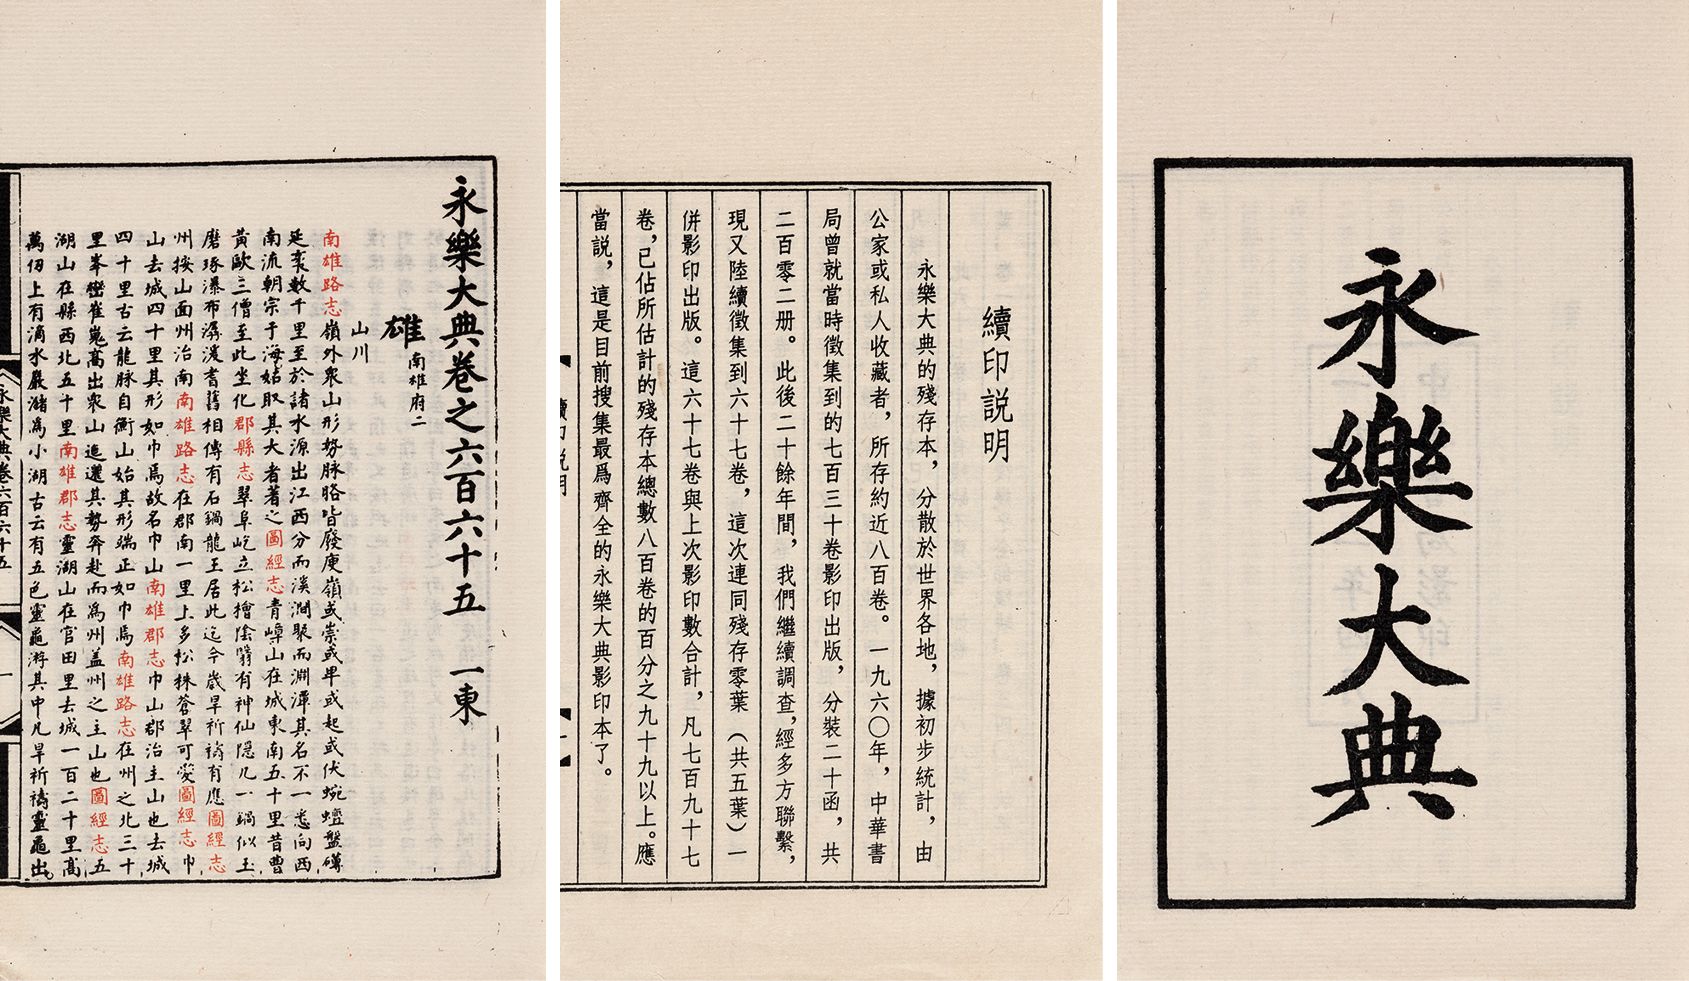 永樂大典
續印説明
永樂大典的殘存本，分散於世界各地，據初步統計，由
公家或私人收藏者，所存約近八百卷。一九六〇年，中華書
局曾就當時徵集到的七百三十卷影印出版，分裝二十函，共
二百零二册。此後二十餘年間，我們繼續調查，經多方聯繫，
現又陸續徵集到六十七卷，這次連同殘存零葉（共五葉）一
併影印出版。這六十七卷與上次影印數合計，凡七百九十七
卷，已佔所估計的殘存本總數八百卷的百分之九十九以上。應
當説，這是目前搜集最爲齊全的永樂大典影印本了。
永樂大典卷之六百六十五 一東
雄 南雄府二
山川
南雄路志嶺外衆山形勢脉胳皆廢庾嶺或崇或卑或起或伏蜿蟺盤礴
延袤數千里至於諸水源出江西分而溪澗聚而淵潭其名不一悉向西
南流朝宗于海姑取其大者著之圖經志青嶂山在城東南五十里昔曹
黃歐三僧至此坐化郡縣志翠阜屹立松檜陰翳有神仙隱几一鍋似玉
磨琢瀑布潺湲耆舊相傳有石鍋龍王居此迄今歲旱祈禱有應圖經志
州按山面州治南南雄路志在郡南一里上多松株蒼翠可愛圖經志巾
山去城四十里其形如巾焉故名巾山南雄郡志巾山郡治主山也去城
四十里古云龍脉自衡山始其形端正如巾焉南雄路志在州之北三十
里峯巒崔嵬高出衆山進邐其勢奔赴而爲州盖州之主山也圖經志五
湖山在縣西北五十里南雄郡志靈湖山在官田里去城一百二十里高
萬仞上有滴水巖瀦爲小湖古云有五色靈龜游其中凡旱祈禱靈龜出
永樂大典卷六百六十五
一